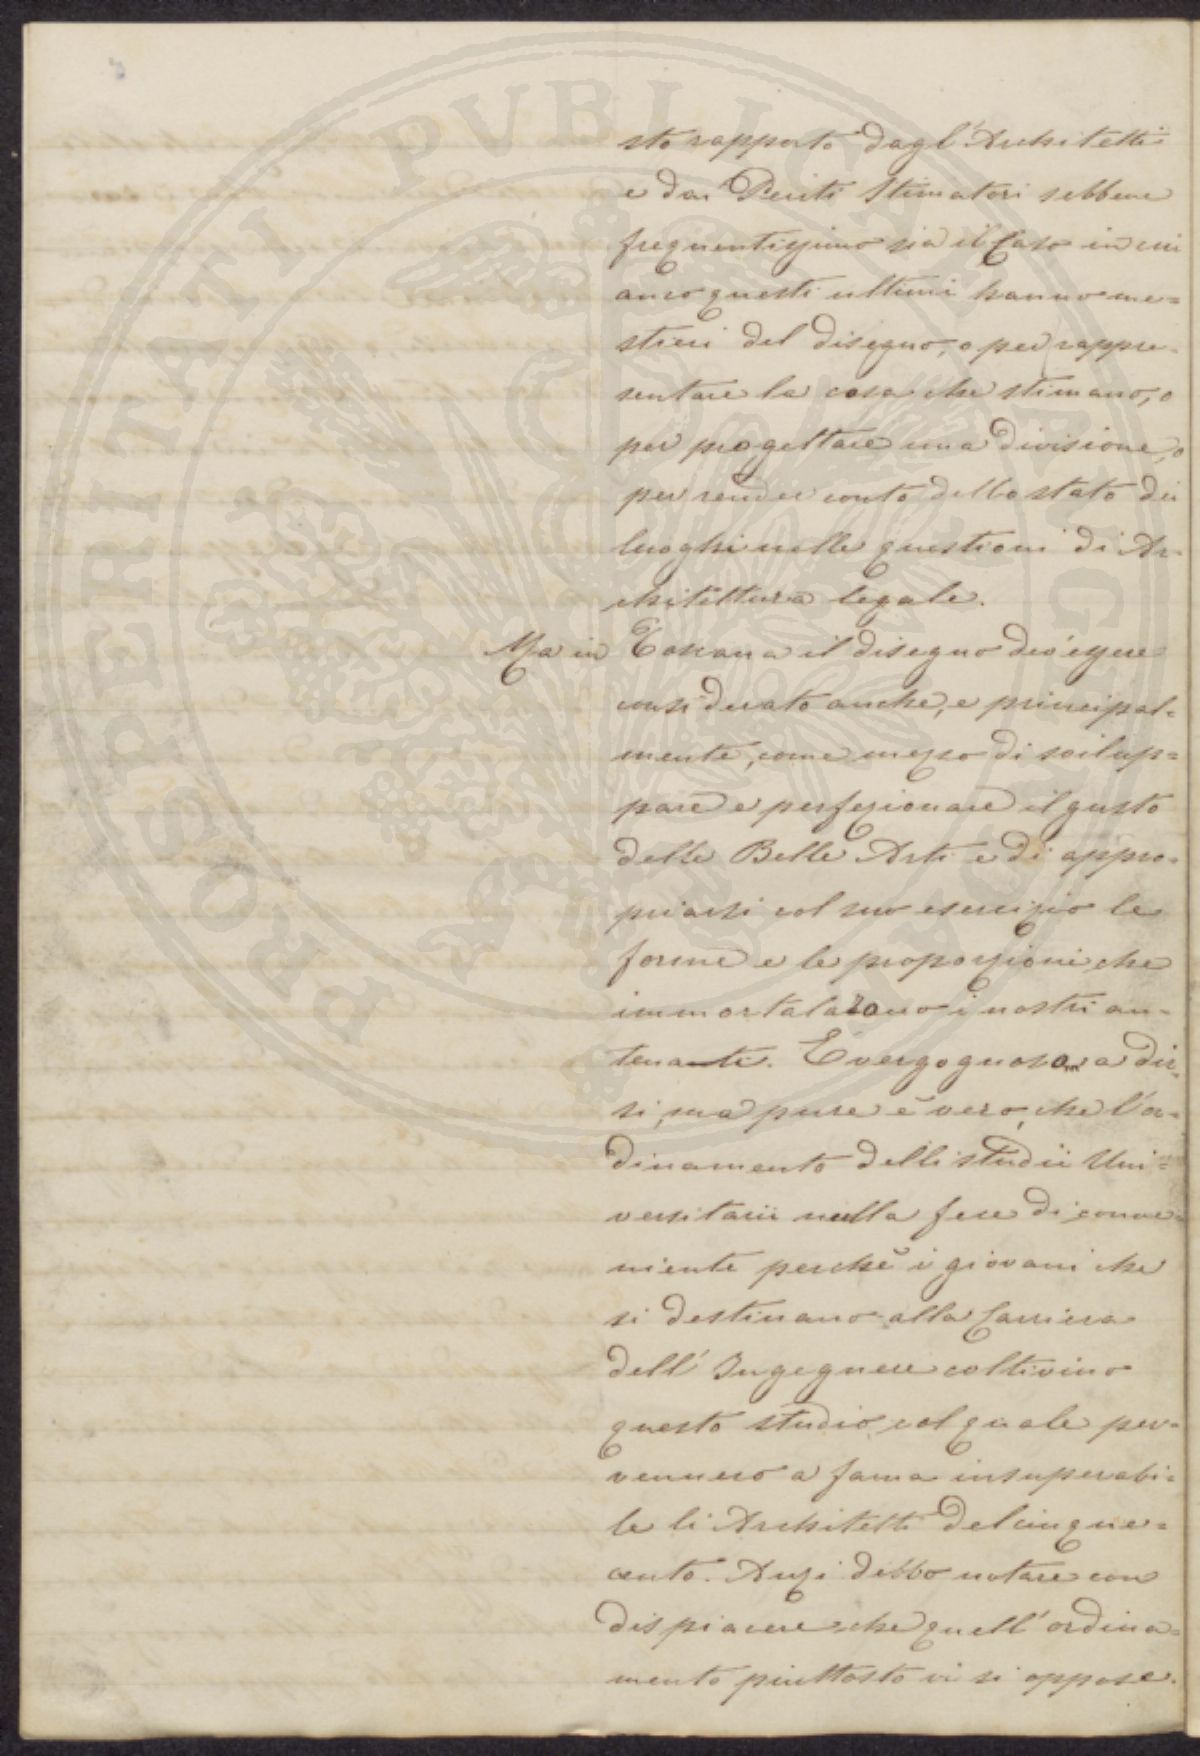 sto rapporto dagl'Architetti
e dai Periti Stimatori sebbene
frequentissimo sia il Caso in cui
anco questi ultimi hanno me=
stieri del disegno, o per rappre=
sentare la cosa che stimano, o
per progettare una divisione, o
per render conto dello stato dei
luoghi nelle questioni di Ar=
chitettura legale.
Ma in Toscana il disegno dev'essere
considerato anche, e principal=
mente, come mezzo di svilup=
pare e perfezionare il gusto
delle Belle Arti e di appro=
priarsi col suo esercizio le
forme e le proporzioni, che
immortalarono i nostri an=
tenati. È vergognoso a dir=
si, ma pure è vero, che l'or=
dinamento delli studii Uni=
versitarii nulla fece di conve=
niente perchè i giovani che
si destinano alla Carriera
dell'Ingegnere coltivino
questo studio, col quale per=
vennero a fama insuperabi=
le li Architetti del cinque=
cento. Anzi debbo notare con
dispiacere che quell'ordina=
mento piuttosto vi si oppose.
PROSPERITATI PVBLICAE AVGENDAE